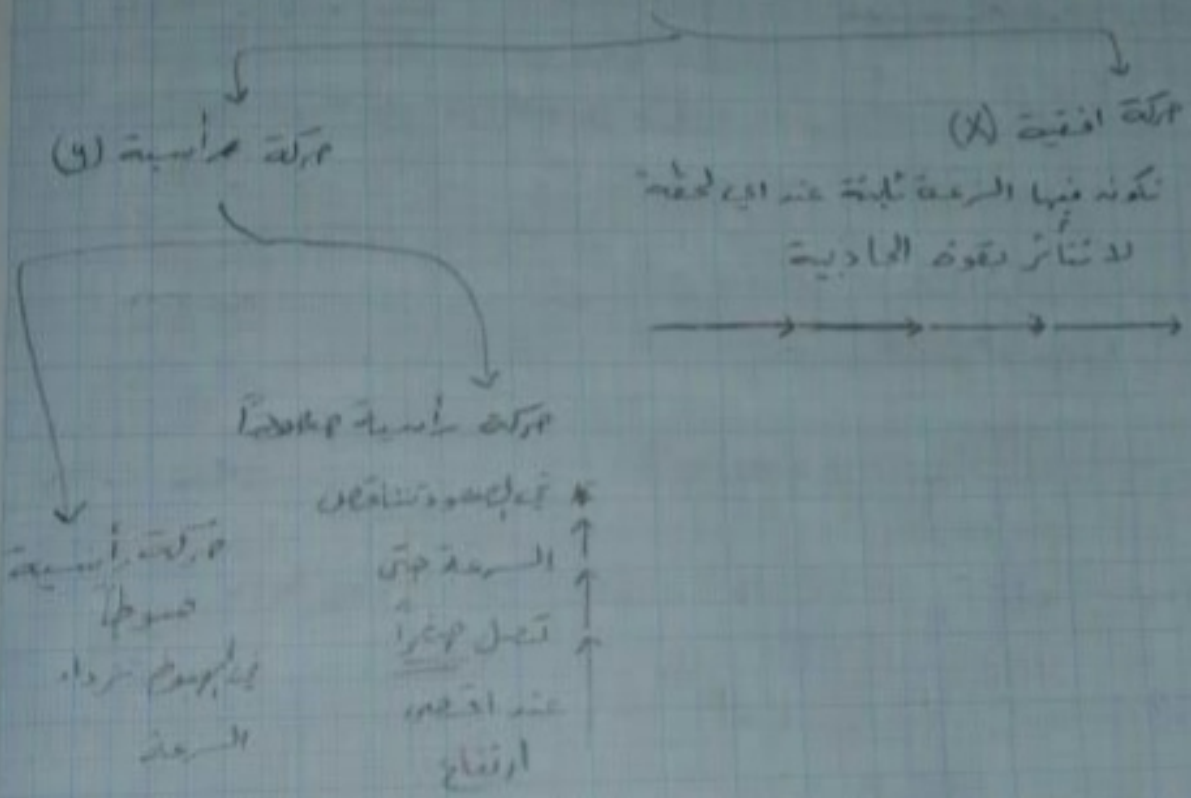 حركة افقية (X)
تكون فيها السرعة ثابتة عند اي لحظة
لا تتأثر بقوة الجاذبية
حركة رأسية (y)
حركة رأسية صعوداً
في الصعود تتناقص
السرعة حتى
تصل صفراً
عند اقصى
ارتفاع
حركة رأسية
هبوطاً
في الهبوط تزداد
السرعة